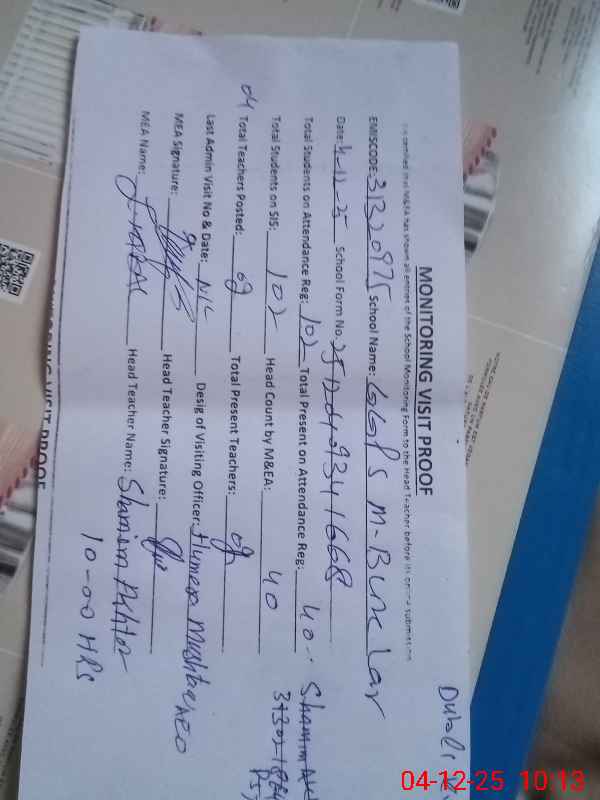 MONITORING VISIT PROOF
It is certified that M&EA has shown all entries of the School Monitoring Form to the Head Teacher before its online submission
EMISCODE: 31320975 School Name: GGPS M-Bux Lar
Date: 4-12-25 School Form No. 25120409341668
Total Students on Attendance Reg: 102 Total Present on Attendance Reg: 40
Total Students on SIS: 102 Head Count by M&EA: 40
04 Total Teachers Posted: 02 Total Present Teachers: 02
Last Admin Visit No & Date: NIL Desig of Visiting Officer: Humera Mushtaq AEO
MEA Signature: Head Teacher Signature:
MEA Name: Head Teacher Name: Shamim Akhtar
10-00 HRS
Shamim
04-12-25 10:13